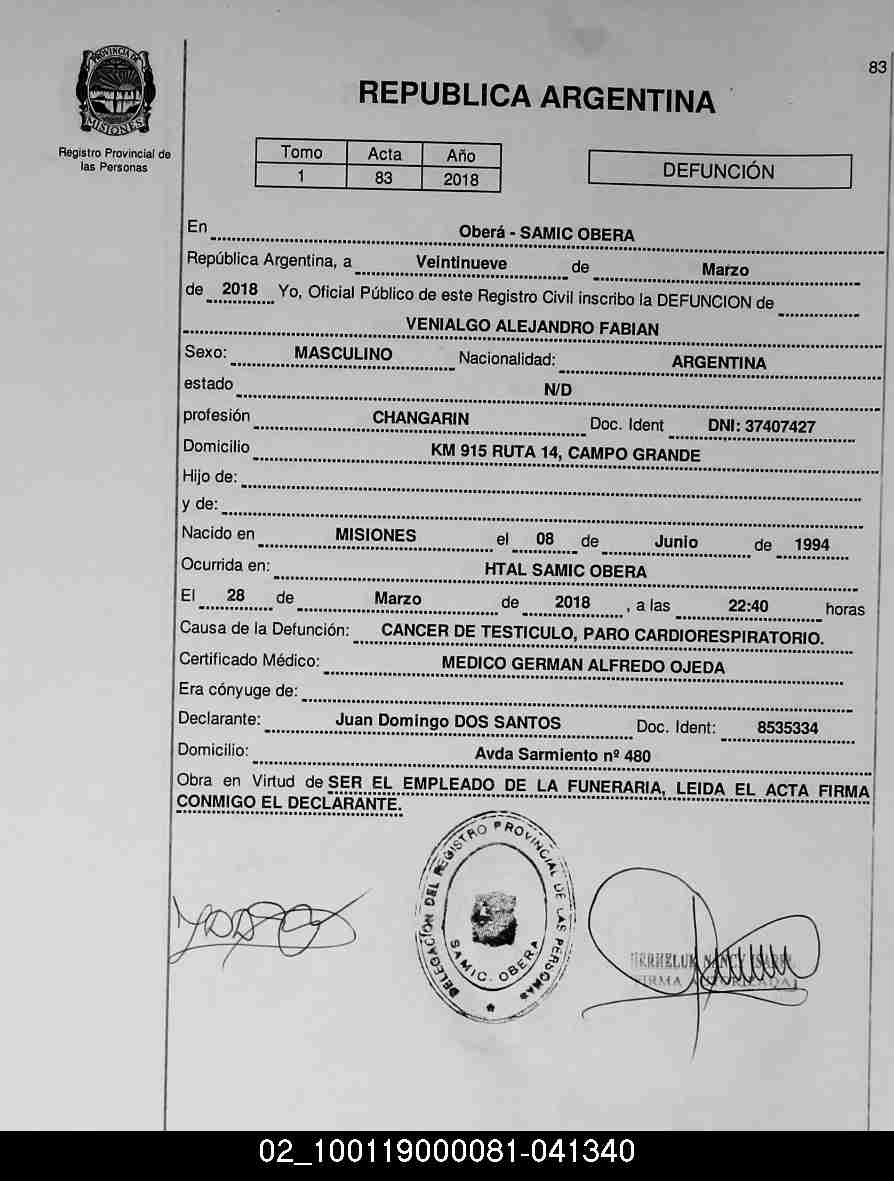 83
PROVINCIA DE
MISIONES
Registro Provincial de
las Personas
REPUBLICA ARGENTINA
Tomo Acta Año
1 83 2018
DEFUNCIÓN
En Oberá - SAMIC OBERA
República Argentina, a Veintinueve de Marzo
de 2018 Yo, Oficial Público de este Registro Civil inscribo la DEFUNCION de
VENIALGO ALEJANDRO FABIAN
Sexo: MASCULINO Nacionalidad: ARGENTINA
estado N/D
profesión CHANGARIN Doc. Ident DNI: 37407427
Domicilio KM 915 RUTA 14, CAMPO GRANDE
Hijo de:
y de:
Nacido en MISIONES el 08 de Junio de 1994
Ocurrida en: HTAL SAMIC OBERA
El 28 de Marzo de 2018 , a las 22:40 horas
Causa de la Defunción: CANCER DE TESTICULO, PARO CARDIORESPIRATORIO.
Certificado Médico: MEDICO GERMAN ALFREDO OJEDA
Era cónyuge de:
Declarante: Juan Domingo DOS SANTOS Doc. Ident: 8535334
Domicilio: Avda Sarmiento nº 480
Obra en Virtud de SER EL EMPLEADO DE LA FUNERARIA, LEIDA EL ACTA FIRMA
CONMIGO EL DECLARANTE.
DELEGACION DEL REGISTRO PROVINCIAL DE LAS PERSONAS
SAMIC. OBERA
NANCY
FIRMA AUTORIZADA
02_100119000081-041340